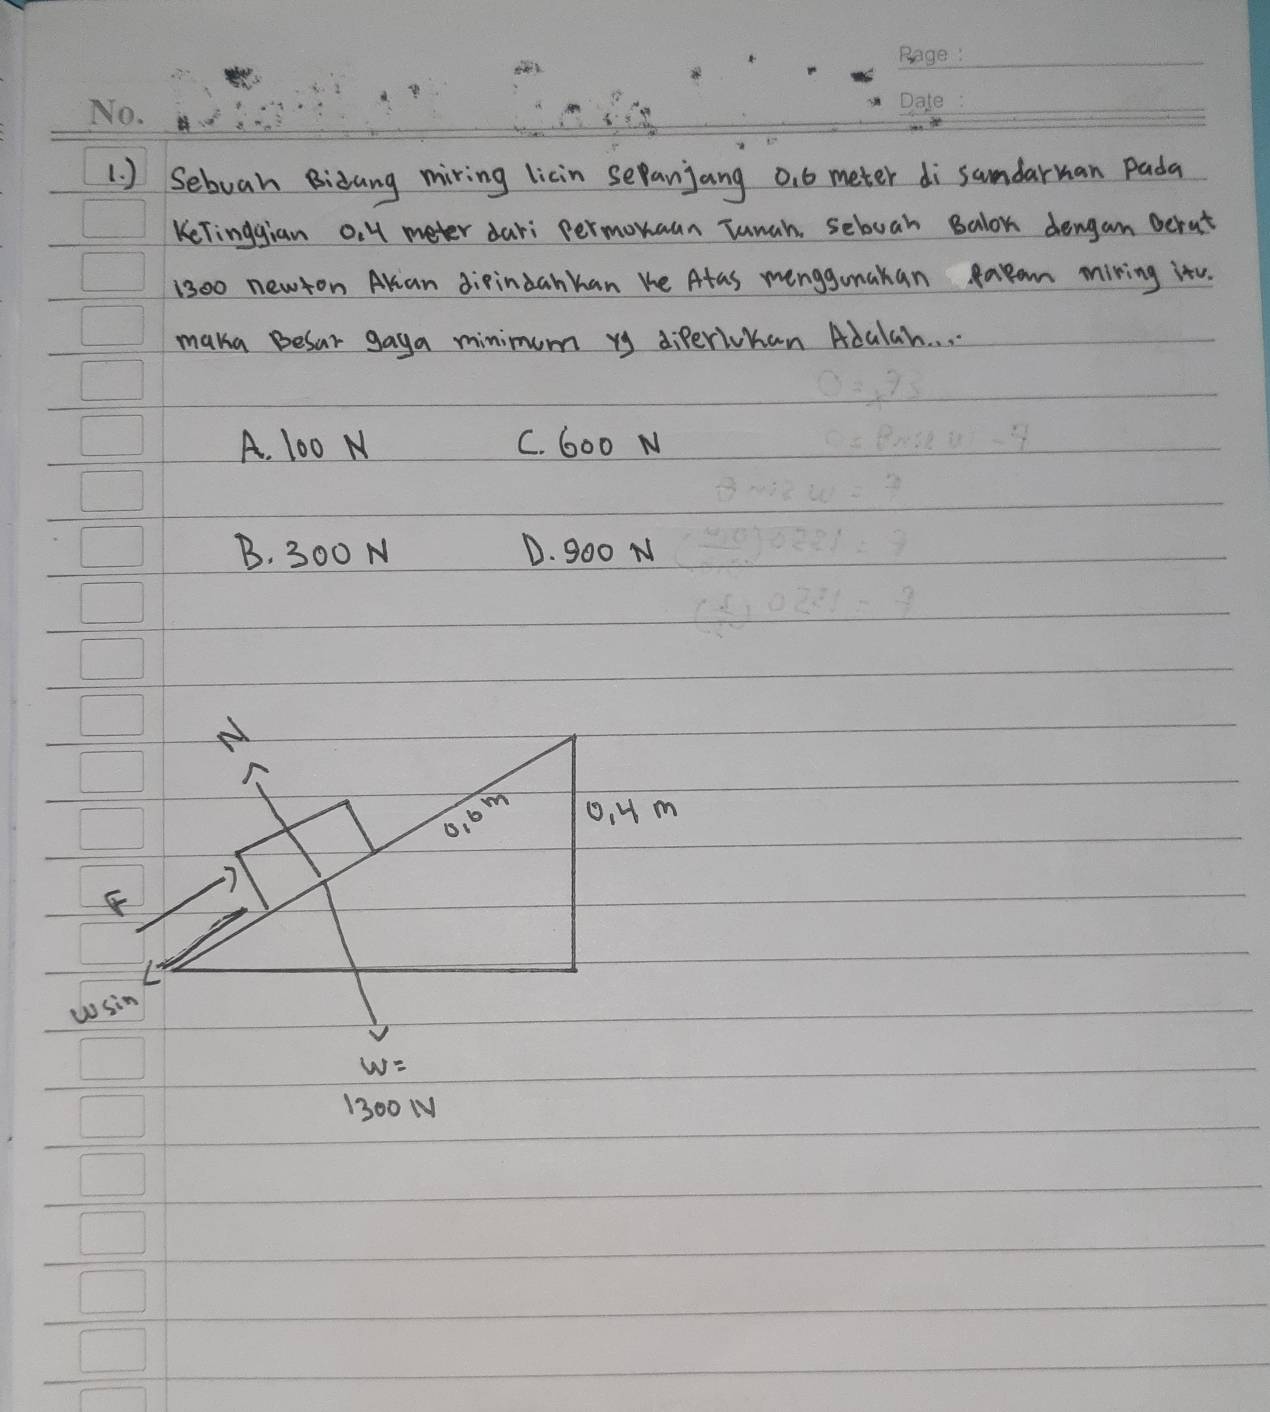 Page :
No.
Date :
1.) Sebuah Bidang miring licin sepanjang 0,6 meter di sandarkan Pada
Ketinggian 0,4 meter dari Permukaan Tanah. Sebuah Balok dengan berat
1300 newton Akan dipindahkan ke Atas menggunakan Papan miring itu.
maka Besar gaya minimum yg diperlukan Adalah....
A. 100 N C. 600 N
B. 300 N D. 900 N
N
0,6 m
0,4 m
F
w sin
W =
1300 N